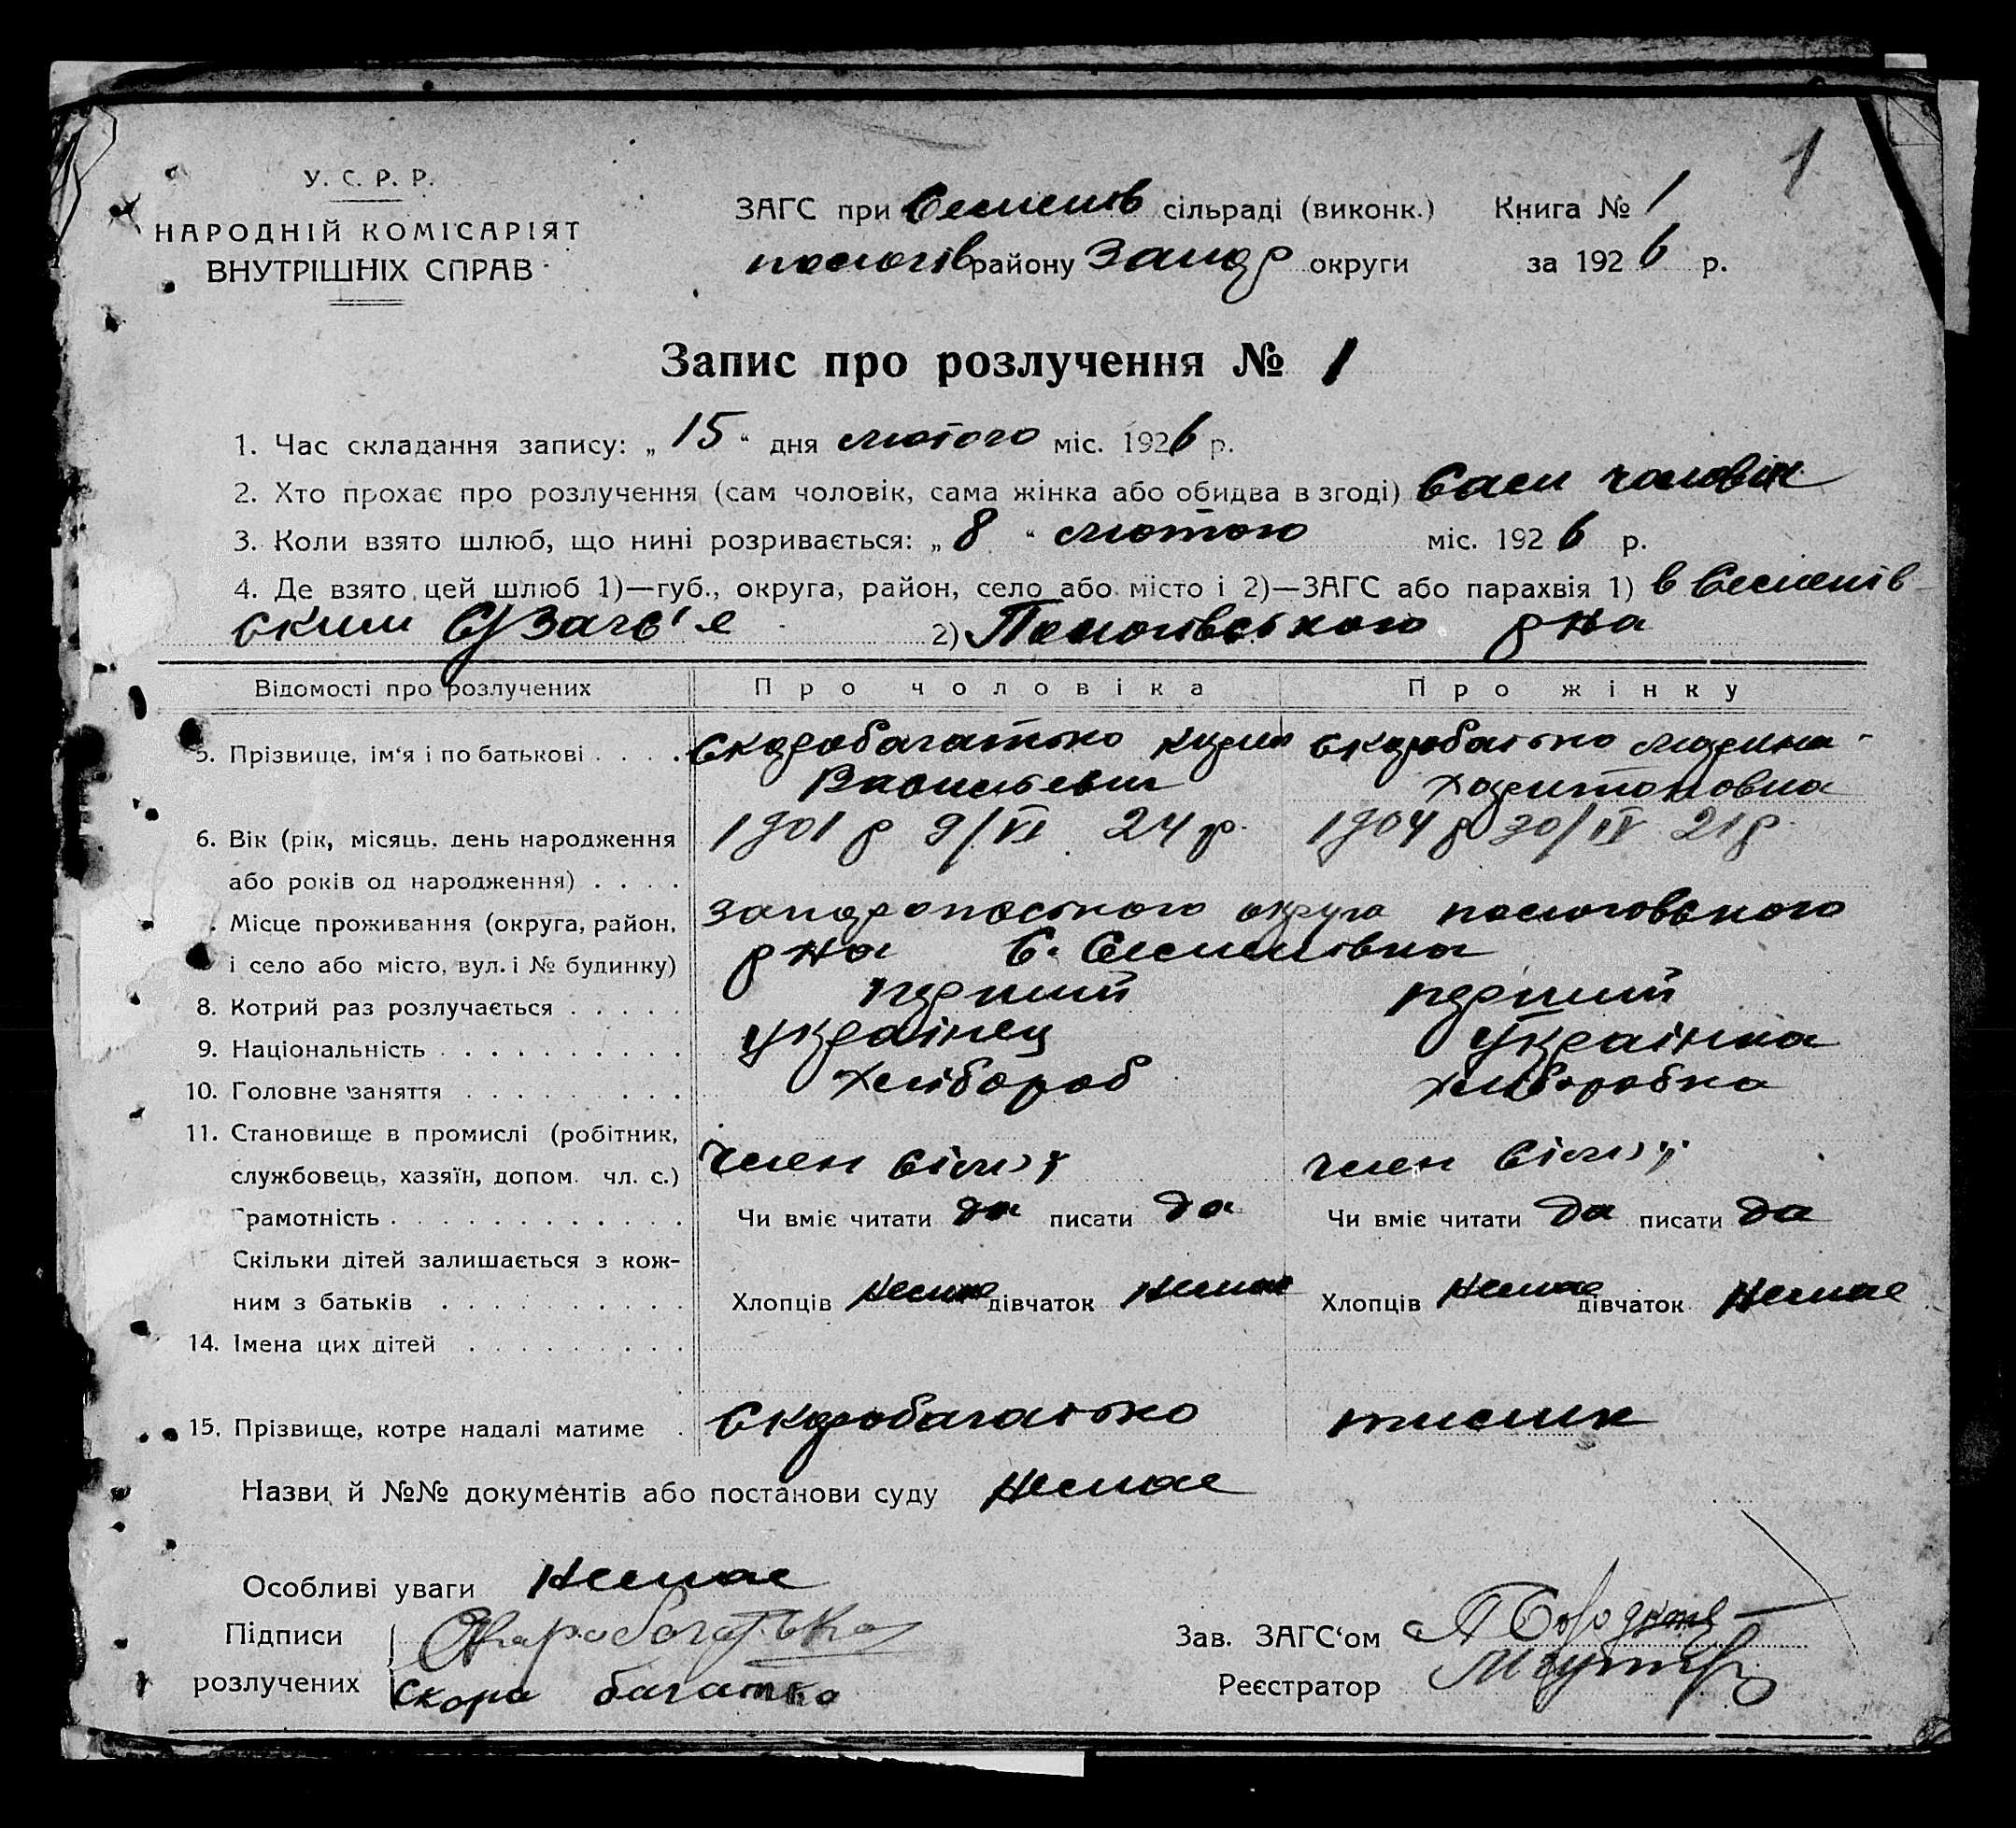 1
У. С. Р. Р.
НАРОДНІЙ КОМІСАРІЯТ
ВНУТРІШНІХ СПРАВ
ЗАГС при Семенів сільраді (виконк.) Книга № 1
пологів району Запор округи за 1926 р.
Запис про розлучення № 1
1. Час складання запису: „ 15 “ дня лютого міс. 1926 р.
2. Хто прохає про розлучення (сам чоловік, сама жінка або обидва в згоді) Сам чоловік
3. Коли взято шлюб, що нині розривається: „ 8 “ лютого міс. 1926 р.
4. Де взято цей шлюб 1)—губ., округа, район, село або місто і 2)—ЗАГС або парахвія 1) в Семенів
ským 2) Пологівського р на
Відомості про розлучених Про чоловіка Про жінку
5. Прізвище, ім‘я і по батькові . . . . Скоробагатько Кирил Скоробатько Марина
Васильевич Харитоновна
6. Вік (рік, місяць, день народження 1901 р 9/VI 24 р. 1904 р 30/IV 21 р.
або років од народження) . . . .
Місце проживання (округа, район, запорожського округа пологовського
і село або місто, вул. і № будинку) р на С. Семенівка
8. Котрий раз розлучається . . . . . перший перший
9. Національність . . . . . . . . . . українец українка
10. Головне заняття . . . . . . . . . хлібороб хліборобка
11. Становище в промислі (робітник, член сімї член сімї
службовець, хазяїн, допом. чл. с.)
Грамотність . . . . . . . . . . . . Чи вміє читати да писати да Чи вміє читати да писати да
Скільки дітей залишається з кож-
ним з батьків . . . . . . . . . . Хлопців немае дівчаток немае Хлопців немае дівчаток немае
14. Імена цих дітей . . . . . . . . .
15. Прізвище, котре надалі матиме . Скоробагатько
Назви й №№ документів або постанови суду немае
Особливі уваги немае
Підписи Скоробогатько Зав. ЗАГС‘ом
розлучених Скора багатка Реєстратор